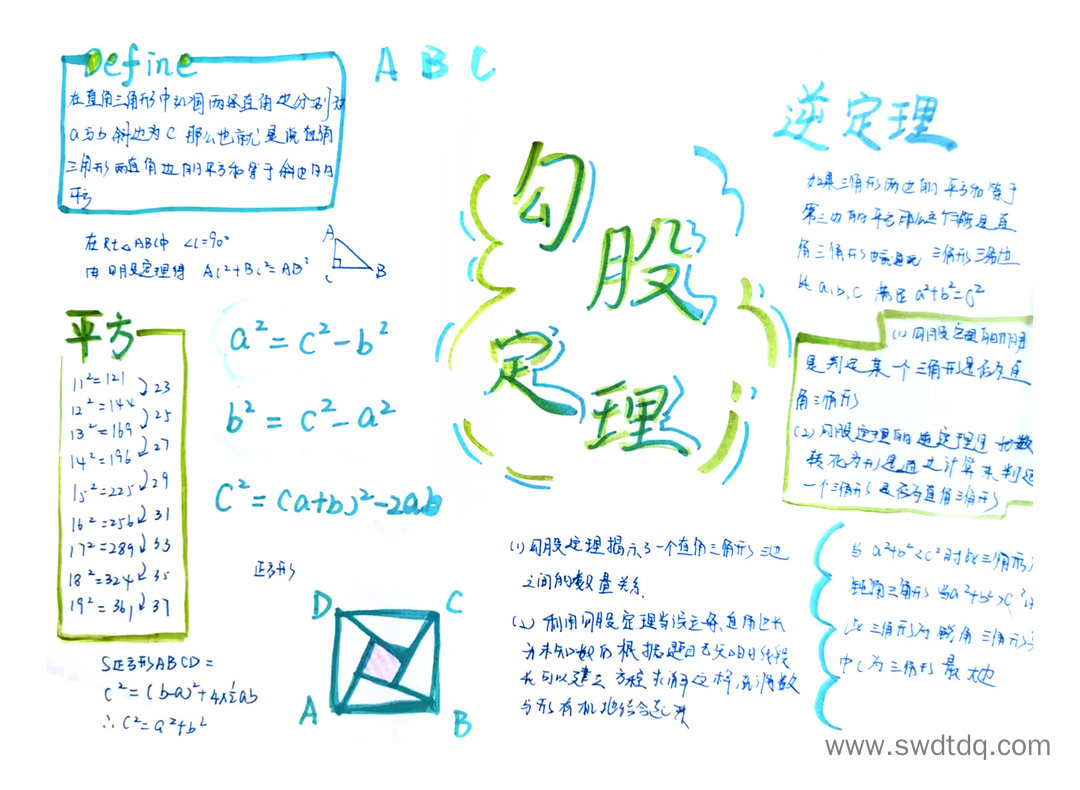 Define
在直角三角形中如果两条直角边分别为
a与b 斜边为c 那么也就是说直角
三角形两直角边的平方和等于斜边的
平方
在Rt△ABC中 ∠C=90°
由勾股定理得 AC²+BC²=AB²
A
B
C
A B C
平方
11²=121
12²=144
13²=169
14²=196
15²=225
16²=256
17²=289
18²=324
19²=361
23
25
27
29
31
33
35
37
a²=c²-b²
b²=c²-a²
C²=(a+b)²-2ab
正方形
D C
A B
S正方形ABCD=
C²=(b-a)²+4×½ab
∴C²=a²+b²
勾股
定理
(1)勾股定理揭示了一个直角三角形三边
之间的数量关系
(2)利用勾股定理当设定好直角边长
为未知数后根据题目已知的线段
长可以建立方程求解这样就将数
与形有机地结合起来
逆定理
如果三角形两边的平方和等于
第三边的平方那么这个就是直
角三角形 三角形三角边
a,b,c 满足a²+b²=c²
(1)勾股定理的作用
是判定某一个三角形是否为直
角三角形
(2)勾股定理的逆定理是把数
转化为形是通过计算来判定
一个三角形是否为直角三角形
当a²+b²<c²时此三角形
钝角三角形当a²+b²>c²
此三角形为锐角三角形
中C为三角形最大边
www.swdtdq.com